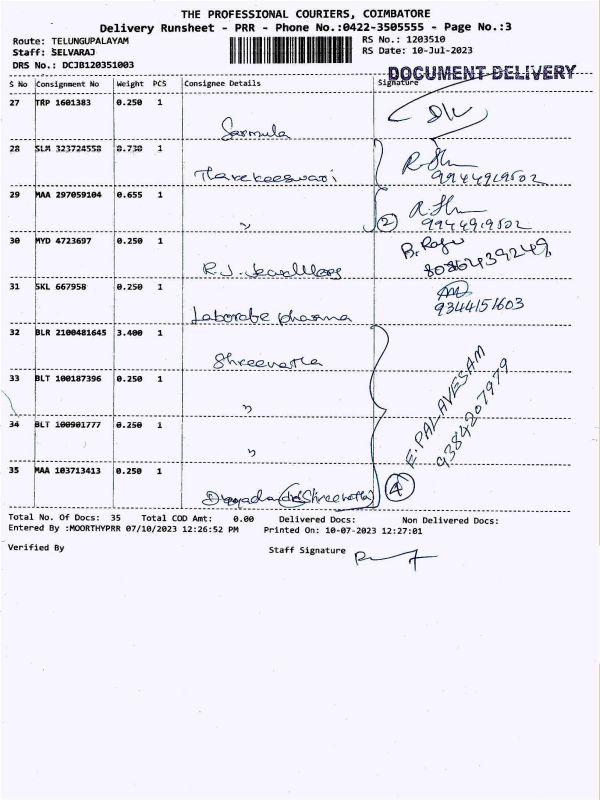 THE PROFESSIONAL COURIERS, COIMBATORE
Delivery Runsheet - PRR - Phone No.:0422-3505555 - Page No.:3
Route: TELUNGUPALAYAM RS No.: 1203510
Staff: SELVARAJ RS Date: 10-Jul-2023
DRS No.: DCJB120351003
DOCUMENT DELIVERY
S No Consignment No Weight PCS Consignee Details Signature
27 TRP 1601383 0.250 1
Sarmula
28 SLM 323724558 0.730 1
Tharekeeswari
9944919502
29 MAA 297059104 0.655 1
" 2 9944919502
30 MYD 4723697 0.250 1 B. Raju
R.J. Jewelllery
31 SKL 667958 0.250 1
Laborate pharma 9344151603
32 BLR 2100481645 3.400 1
Shreenatha
33 BLT 100187396 0.250 1
"
E. PALAVESAM
9384207979
34 BLT 100901777 0.250 1
"
35 MAA 103713413 0.250 1
4
Total No. Of Docs: 35 Total COD Amt: 0.00 Delivered Docs: Non Delivered Docs:
Entered By :MOORTHYPRR 07/10/2023 12:26:52 PM Printed On: 10-07-2023 12:27:01
Verified By Staff Signature